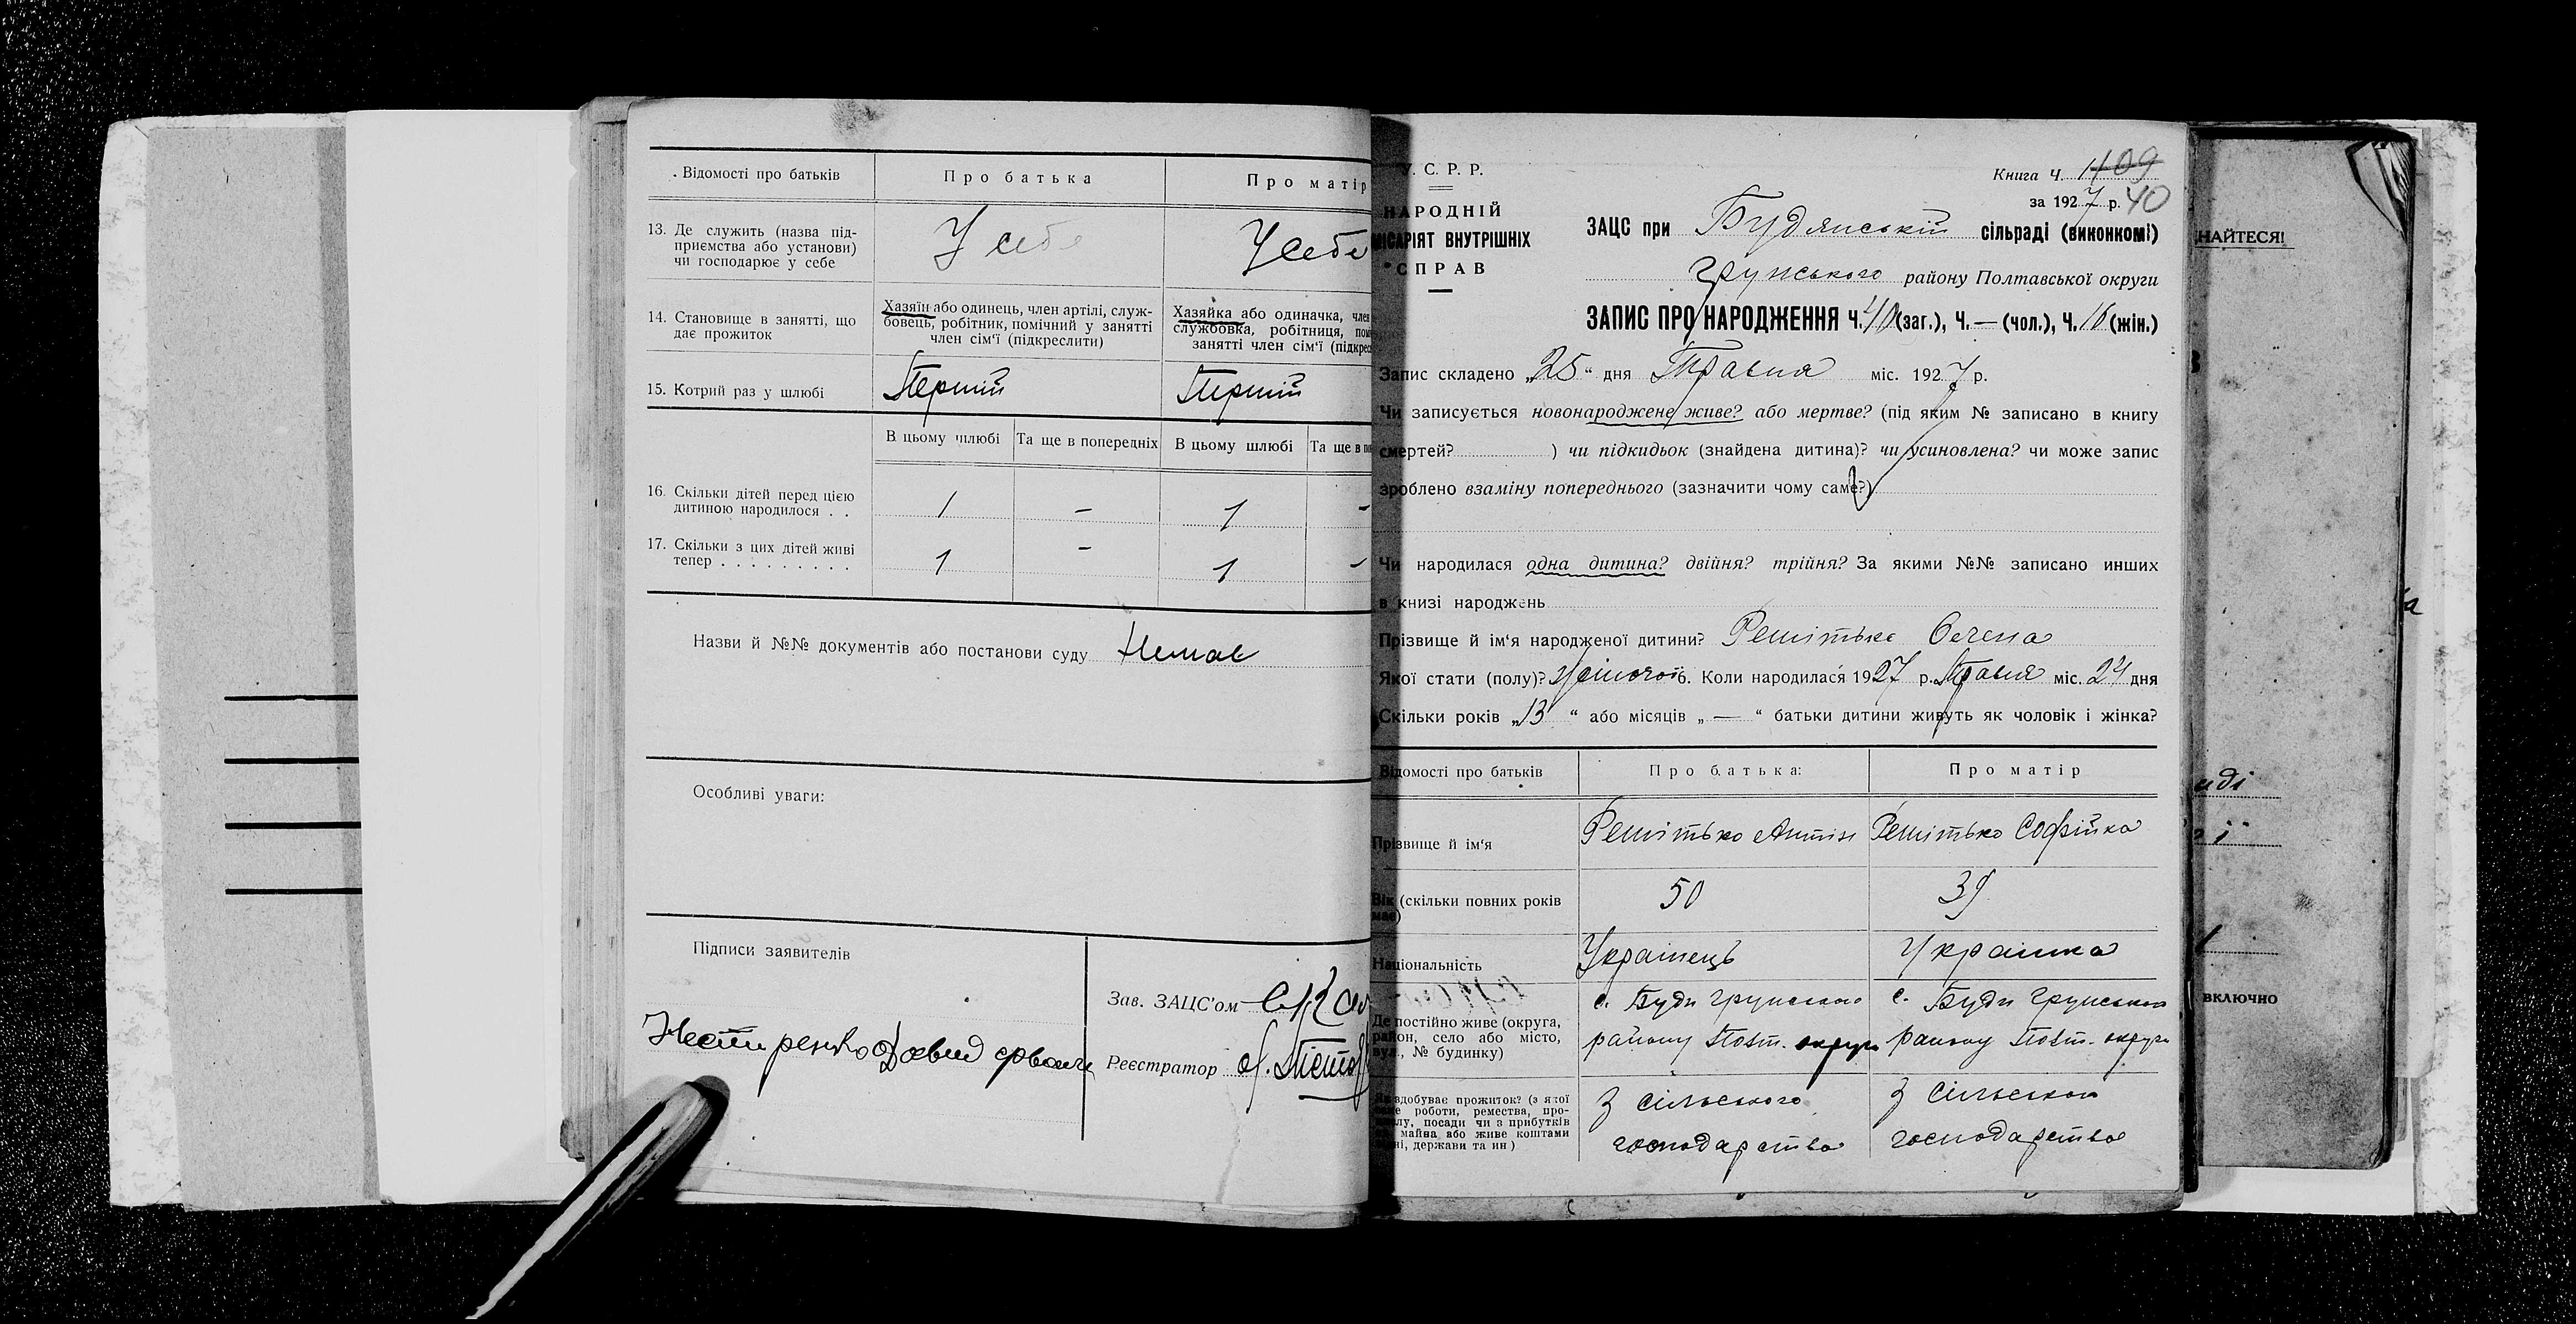 Відомості про батьків
Про батька
Про матір
13. Де служить (назва під-
приємства або установи)
чи господарює у себе
У себе
У себе
14. Становище в занятті, що
дає прожиток
Хазяїн або одинець, член артілі, служ-
бовець, робітник, помічний у занятті
член сім'ї (підкреслити)
Хазяйка або одиначка, член
службовка, робітниця,
занятті член сім'ї
15. Котрий раз у шлюбі
Перший
Перший
В цьому шлюбі
Та ще в попередніх
В цьому шлюбі
Та ще в
16. Скільки дітей перед цією
дитиною народилося . .
1
-
1
-
17. Скільки з цих дітей живі
тепер . . . . . . . . .
1
-
1
-
Назви й №№ документів або постанови суду Немає
Особливі уваги:
Підписи заявителів
Зав. ЗАЦС'ом
Реєстратор
У. С. Р. Р.
НАРОДНІЙ
ВНУТРІШНІХ
СПРАВ
Книга Ч. 1409
за 1927 р. 40
ЗАЦС при Будянській сільраді (виконкомі)
Грунського району Полтавської округи
ЗАПИС ПРО НАРОДЖЕННЯ Ч. 40 (заг.), Ч. — (чол.), Ч. 16 (жін.)
Запис складено „25“ дня Травня міс. 1927 р.
Чи записується новонароджене живе? або мертве? (під яким № записано в книгу
смертей? ) чи підкидьок (знайдена дитина)? чи усиновлена? чи може запис
зроблено взаміну попереднього (зазначити чому саме?)
Чи народилася одна дитина? двійня? трійня? За якими №№ записано инших
в книзі народжень
Прізвище й ім'я народженої дитини? Решітько Олена
Якої стати (полу)? жіночої 6. Коли народилася 1927 р. Травня міс. 24 дня
Скільки років „13“ або місяців „—“ батьки дитини живуть як чоловік і жінка?
Відомості про батьків
Про батька:
Про матір
Прізвище й ім'я
Решітько Антін
Решітько Софійка
Вік (скільки повних років
має)
50
39
Національність
Українець
Українка
Де постійно живе (округа,
район, село або місто,
вул., № будинку)
с. Буди Грунського
району Полт. округи
с. Буди Грунського
району Полт. округи
здобуває прожиток? (з якої
роботи, ремества, про-
посади чи з прибутків
майна або живе коштами
держави та ин)
З сільського
господарства
З сільського
господарства
НАЙТЕСЯ!
ВКЛЮЧНО